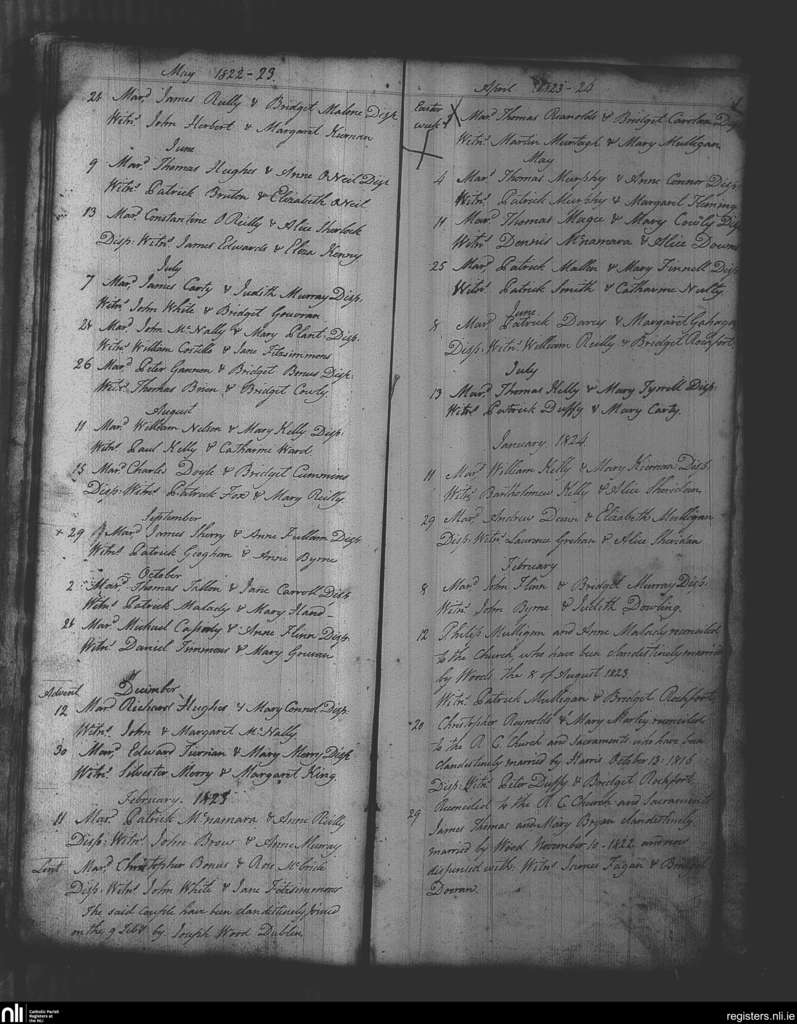 May 1822-23.
24 Mard James Reilly & Bridget Malone Disp
Witns John Herbert & Margaret Kiernan
June
9 Mard Thomas Hughes & Anne ONeil Disp
Witns Patrick Bruton & Elizabeth ONeil
13 Mard Constantine O Reilly & Alice Sherlock
Disp: Witns James Edwards & Eliza Kenny
July
7 Mard James Carty & Judith Murray Disp.
Witns John White & Bridget
24 Mard John McNally & Mary Plant Disp.
Witns William Costillo & Jane Fitzsimmons
26 Mard Peter Gannon & Bridget Bonus Disp:
Witns Thomas Brien & Bridget Cowly
August
11 Mard William Nelson & Mary Kelly Disp:
Witns Paul Kelly & Catharine Ward
15 Mard Charles Doyle & Bridget Cummins
Disp: Witns Patrick Fox & Mary Reilly
September
+ 29 Mard James Sherry & Anne Fullam Disp
Witns Patrick Geoghan & Anne Byrne
October
2 Mard Thomas Fallon & Jane Carroll Disp
Witns Patrick Malady & Mary Hand
24 Mard Michael & Anne Flinn Disp:
Witns Daniel Timmons & Mary
Advent December
12 Mard Richard Hughes & Mary Connor Disp
Witns John & Margaret McNally
30 Mard Edward Tiernan & Mary Merry Disp
Witns Silvester Merry & Margaret King
February. 1823
11 Mard Patrick Mcnamara & Anne Reilly
Disp: Witns John & Anne Murray
Lent Mard Christopher Bonus & Rose McBride
Disp: Witns John White & Jane Fitzsimmons
The said couple have been clandestinely joined
on the 9 Febr by Joseph Wood Dublin
April 1823-24
Easter week X Mard Thomas Reanolds & Bridget Disp
Witns Martin Murtagh & Mary Mulligan
May
4 Mard Thomas Murphy & Anne Connor Disp:
Witns Patrick Murphy & Margaret Fleming
11 Mard Thomas Magee & Mary Cowly Disp
Witns Dennis Mcnamara & Alice
25 Mard Patrick Mallin & Mary Finnell Disp
Witns Patrick Smith & Catharine Nulty
June
8 Mard Patrick Darcy & Margaret
Disp: Witns William Reilly & Bridget Rochfort
July
13 Mard Thomas Kelly & Mary Tyrrell Disp
Witns Patrick Duffy & Mary Carty.
January 1824
11 Mard William Kelly & Mary Kiernan Disp.
Witns Bartholomew Kelly & Alice Sheridan
29 Mard Andrew & Elizabeth Mulligan
Disp: Witns Laurence Graham & Alice Sheridan
February
8 Mard John Flinn & Bridget Murray Disp:
Witns John Byrne & Judith Dowling.
12 Philip Mulligan and Anne Malady reconciled
to the Church, who have been clandestinely married
by Woods, the 8 of August 1823
Witns Patrick Mulligan & Bridget Rochfort
20 Christopher Reynolds & Mary Marley reconciled
to the R C. Church and Sacraments who have been
clandestinely married by Harris October 13. 1816
Disp: Witns Peter Duffy & Bridget Rochfort
Reconciled to the R. C Church and Sacraments
29 James Thomas and Mary Bryan clandestinely
married by Wood November 10. 1822 and now
dispensed with. Witns James Fagan & Bridget
Doran
nli
Catholic Parish
Registers at
the NLI
registers.nli.ie